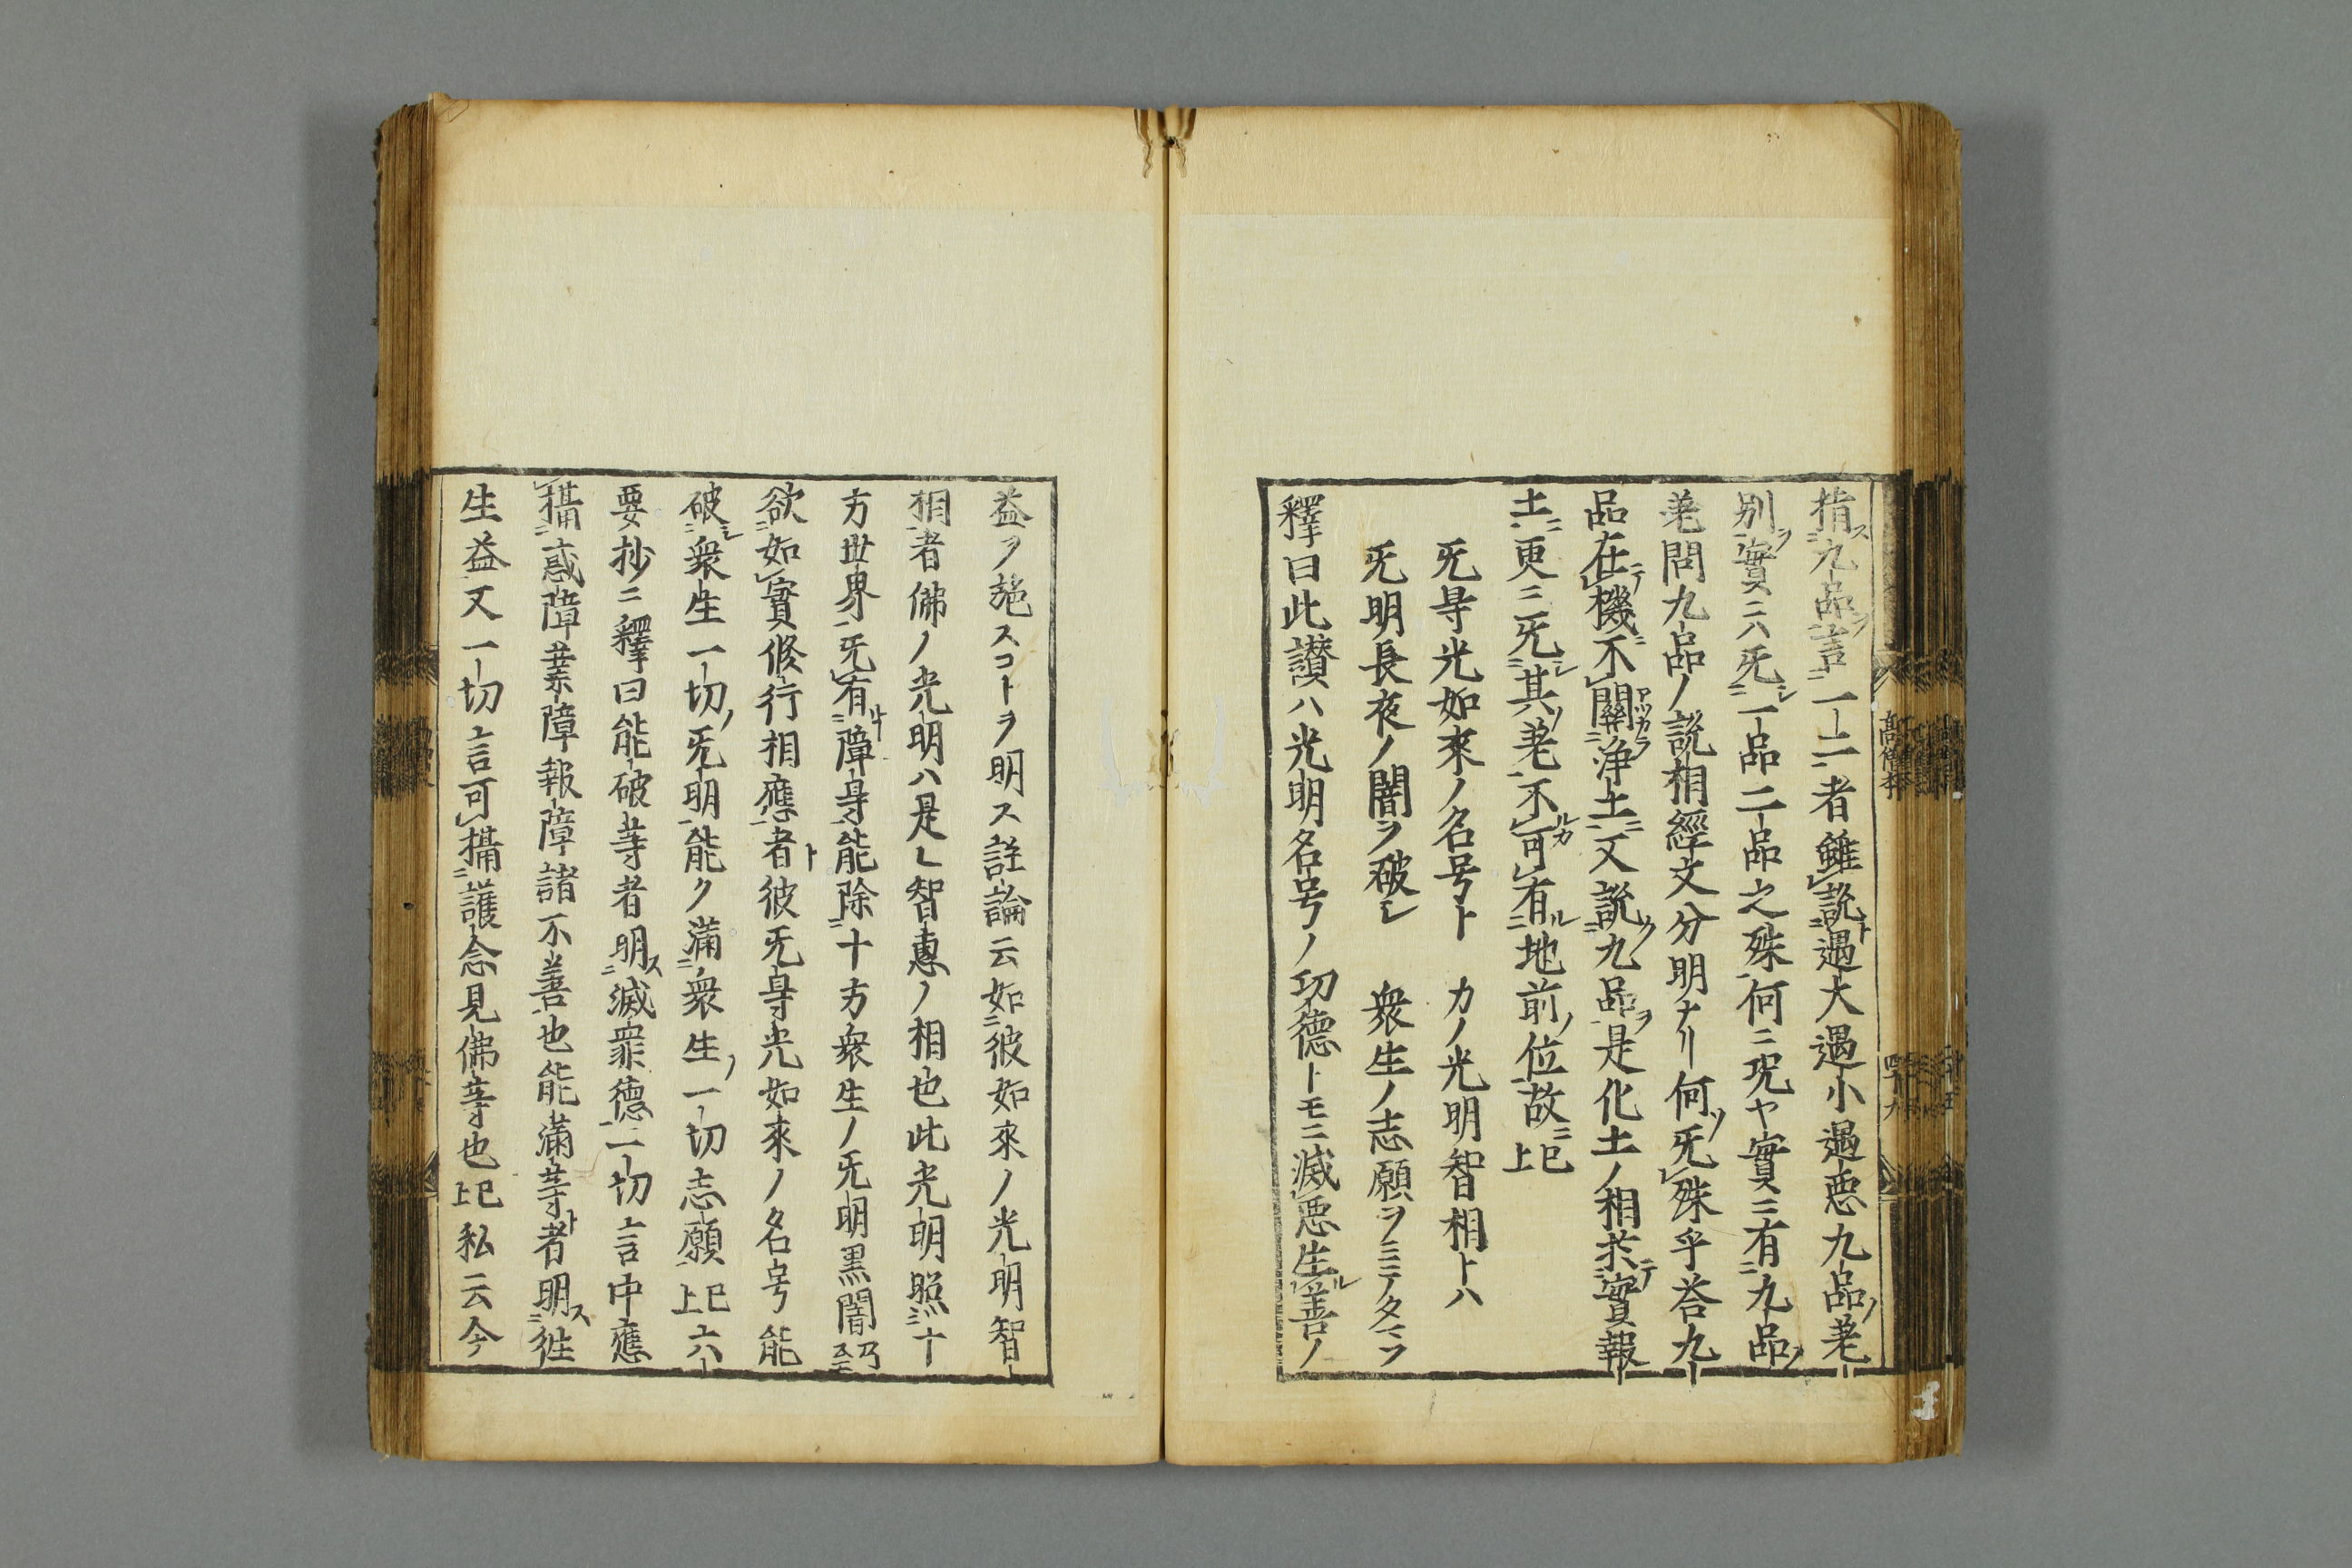 指ス九品ヲ言一一者雖説ト遇大遇小遇悪九品ノ差
別ヲ實ニハ旡シ一品二品之殊何ニ況ヤ實ニ有九品ノ
差問九品ノ説相經文分明ナリ何ソ旡殊乎答九
品在テ機ニ不關アツカラ淨土ニ又説ク九品ヲ是化土ノ相於テ實報
土ニ更ニ旡シ其ノ差不可ルカ有ル地前ノ位故ニ已上
旡导光如來ノ名号ト カノ光明智相トハ
旡明長夜ノ闇ヲ破シ 衆生ノ志願ヲミテタマフ
釋曰此讃ハ光明名号ノ功德トモニ滅悪生ル善ノ
益ヲ施スコトヲ明ス註論云如彼如來ノ光明智
相者佛ノ光明ハ是レ智惠ノ相也此光明照十
方世界旡有障导能除十方衆生ノ旡明黒闇乃至
欲如實修行相應者ト彼旡导光如來ノ名号能
破シ衆生一切ノ旡明能ク滿衆生ノ一切志願已上六
要抄ニ釋曰能破等者明ス滅罪德一切言中應
攝惑障業障報障諸不善也能滿等ト者明ス徃
生益又一切言可攝護念見佛等也已上私云今